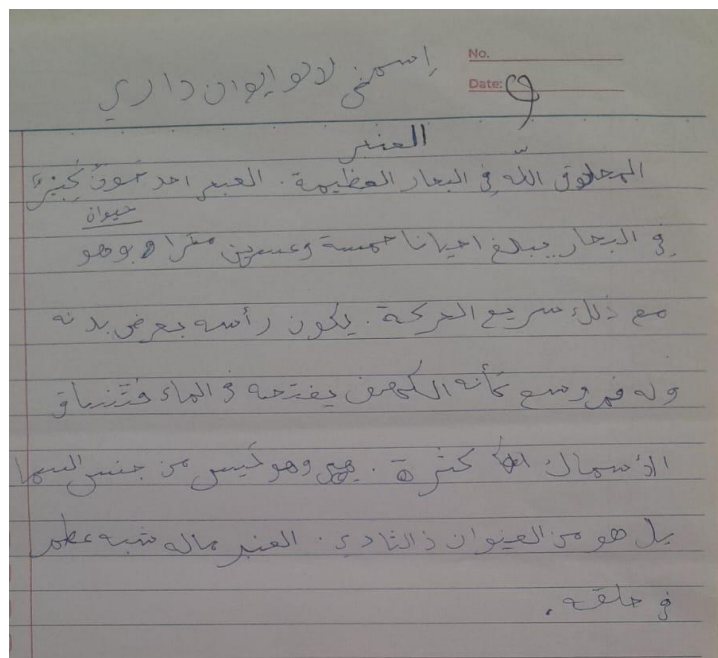 No.
Date:
إسمي لالو ايوان داري
العنبر
المخلوق اللّه في البحار العظيمة. العنبر احد حيوان كبير
في البحار يبلغ احيانا خمسة وعسرين مترا وهو
مع ذلك سريع الحركة. يكون رأسه بعرض بدنه
وله فم وسع كأنه الكهف يفتحه في الماء فتنساق
الأسماك كثرة. وهو ليس من جنس السما
بل هو من الحيوان ذ الثادي. العنبر ماله شبه عظم
في حلقه.